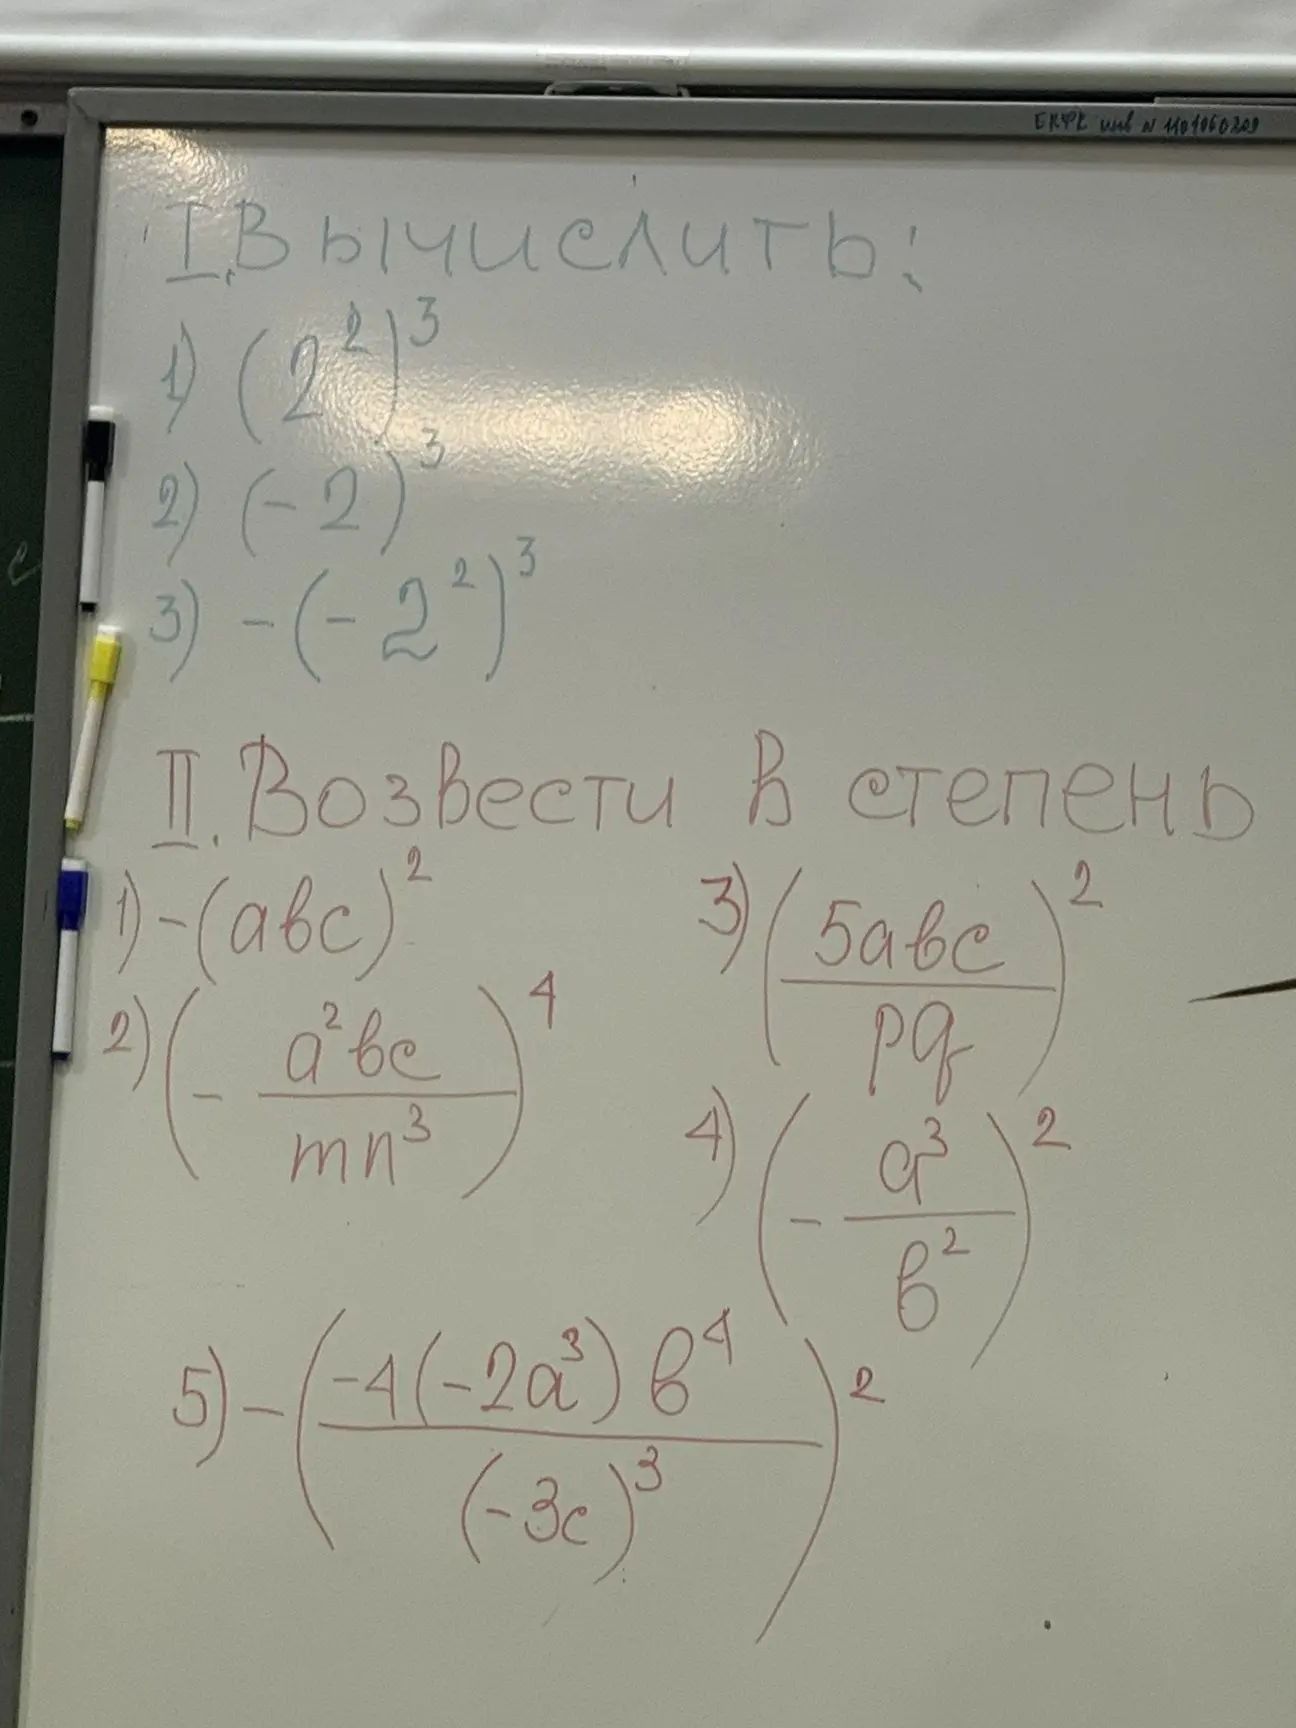 ЕКФК инв N 1101060209
I. Вычислить:
1) (2²)³
2) (-2)³
3) -(-2²)³
II. Возвести в степень
1) -(abc)²
2) (- a²bc / mn³)⁴
3) (5abc / pq)²
4) (- a³ / b²)²
5) -(-4(-2a³)b⁴ / (-3c)³)²